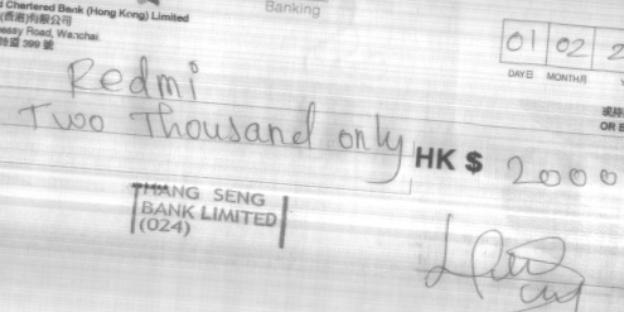 Chartered Bank (Hong Kong) Limited
(香港)有限公司
Road, Wanchai
399 號
Banking
01 02 2
DAY日 MONTH月
OR
Redmi
Two Thousand only
HK $ 2000
HANG SENG
BANK LIMITED
(024)